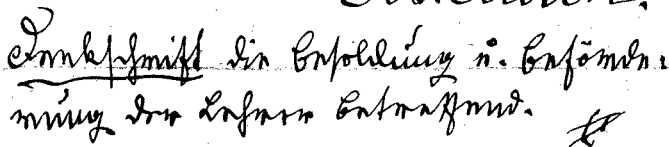 Denkschrift die Besoldung u. Beförde-
rung der Lehrer betreffend.